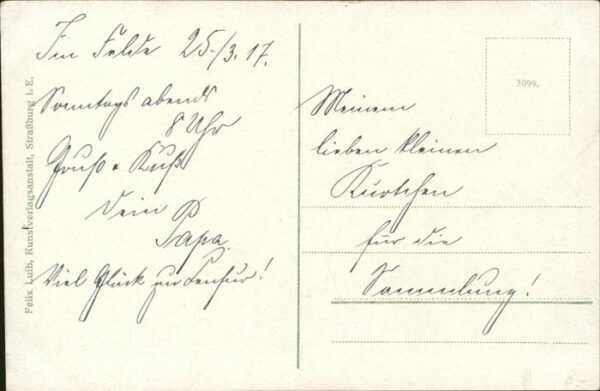 Im Felde 25./3. 17.
Sonntags abends
8 Uhr
Gruß u Kuß
Dein
Papa.
Viel Glück zur Zensur!
Meinem
lieben kleinen
Kurtchen
für die
Sammlung!
3099.
Felix Luib, Kunstverlagsanstalt, Straßburg i. E.